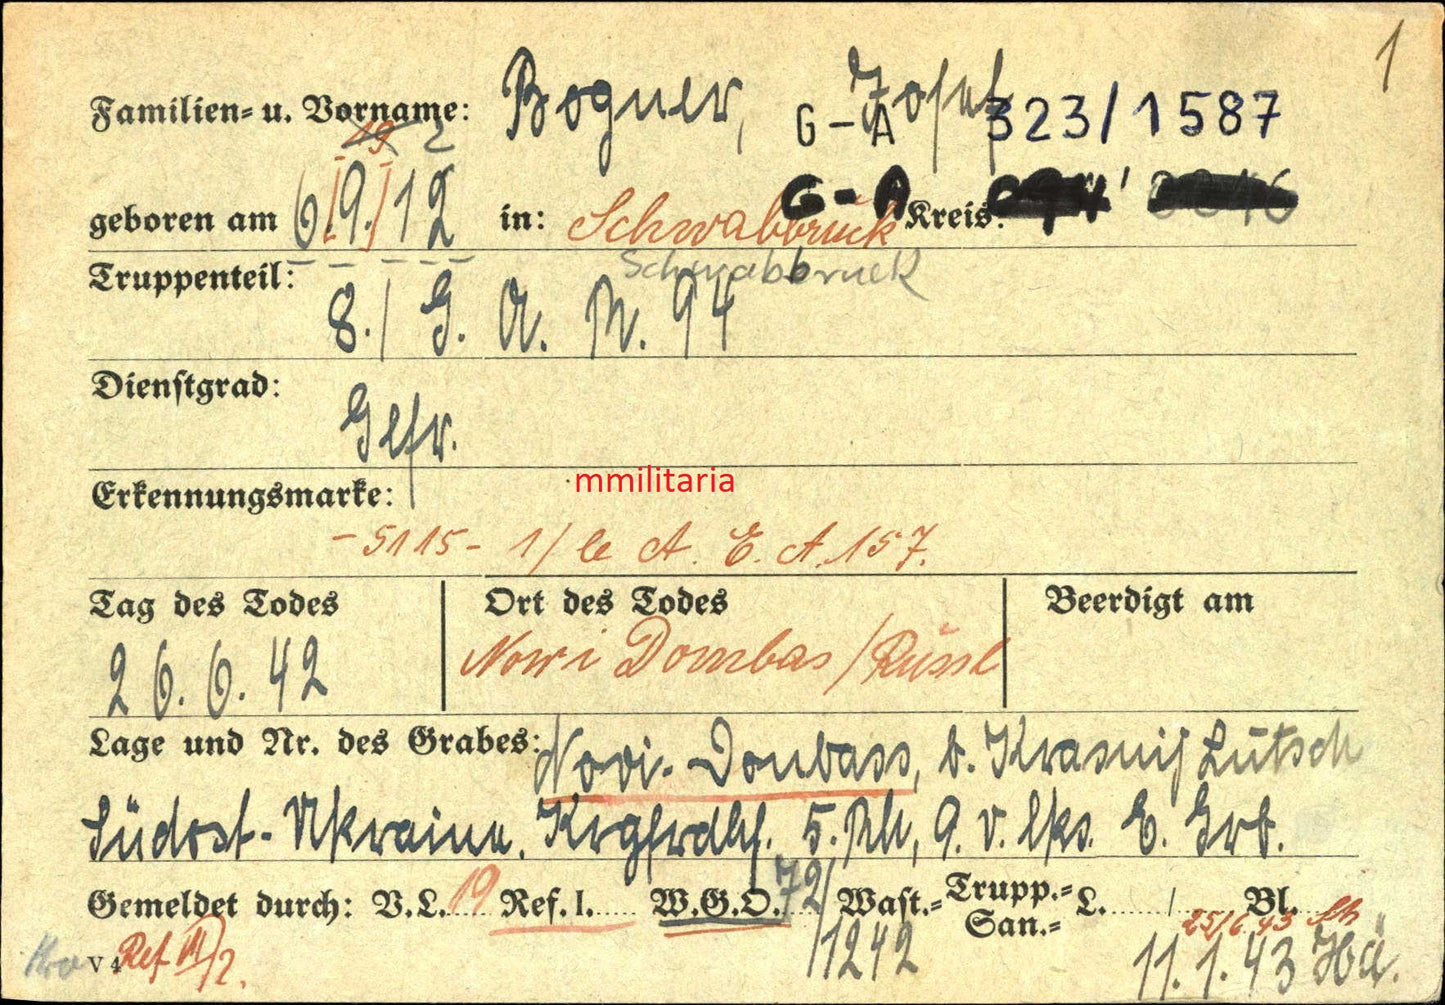 1
Familien- u. Vorname: Bogner, Josef
G-A 323/1587
19 2
geboren am 6.9.12 in: Schwabbruck Kreis:
G-A
Schwabbruck
Truppenteil: 8./ G. A. R. 94
Dienstgrad: Gefr.
mmilitaria
Erkennungsmarke:
-5115- 1/ le A. E. A. 157.
Tag des Todes Ort des Todes Beerdigt am
26.6.42 Nowi Dombas / Russl
Lage und Nr. des Grabes: Novi-Donbass, b. Krasnij Lutsch
Südost-Ukraine. Krgfrdhf. 5. Rh, 9. v. lks. E. Grb.
Gemeldet durch: V.L. 19 Ref. I. W.G.O. 72/ Wast.- Trupp.- San.- L. / Bl.
1242 25/6.43
V 4 Ref VII/2. 11.1.43 Hä.